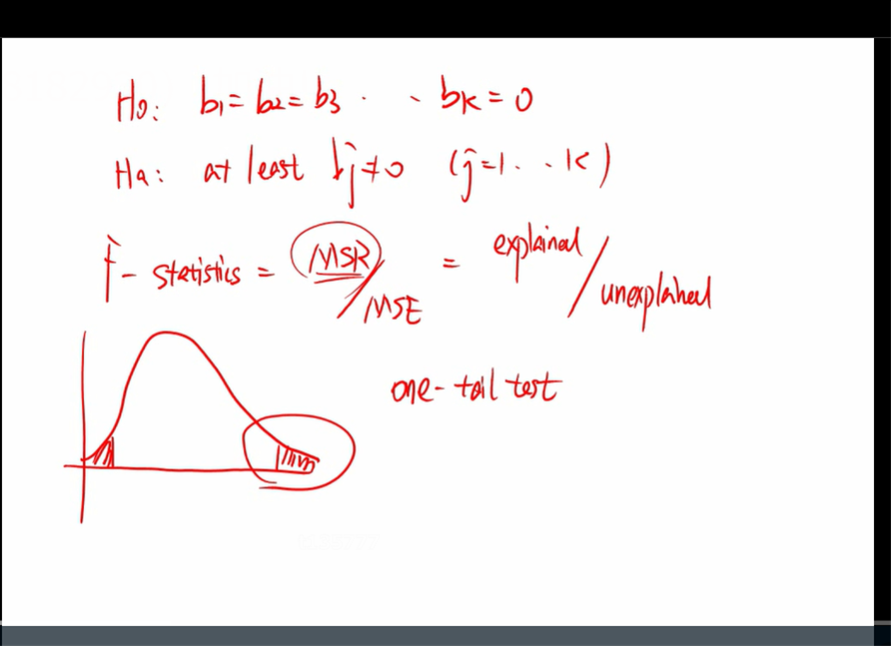 Ho: b1 = b2 = b3 . . bk = 0
Ha: at least bj ≠ 0 (j=1 . . k)
F - statistics = MSR/MSE = explained/unexplained
one-tail test